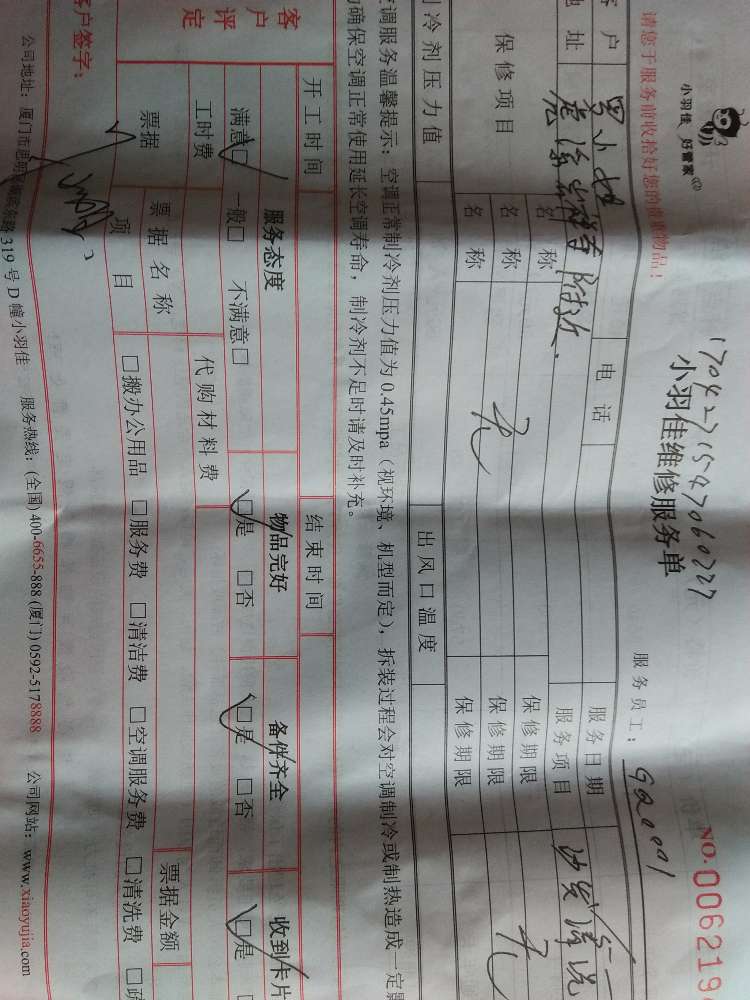 小羽佳 好管家
小羽佳维修服务单
NO.006219
请您于服务前收拾好您的贵重物品！
服务员工：
客户
电话
服务日期
地址
服务项目
沙发清洗
保修项目
名称
保修期限
名称
无
保修期限
无
名称
保修期限
制冷剂压力值
出风口温度
空调服务温馨提示：空调正常制冷剂压力值为0.45mpa（视环境、机型而定），拆装过程会对空调制冷或制热造成一定影
确保空调正常使用延长空调寿命，制冷剂不足时请及时补充。
开工时间
结束时间
客户评定
服务态度
物品完好
备件齐全
收到卡片
满意□ 一般□ 不满意□
□是 □否
□是 □否
□是
工时费
代购材料费
票据
票据名称
票据金额
项目
□搬办公用品 □服务费 □清洁费 □空调服务费 □清洗费
客户签字：
公司地址：厦门市思明 319号D幢小羽佳 服务热线：(全国)400-6655-888 (厦门)0592-5178888 公司网站：www.xiaoyujia.com